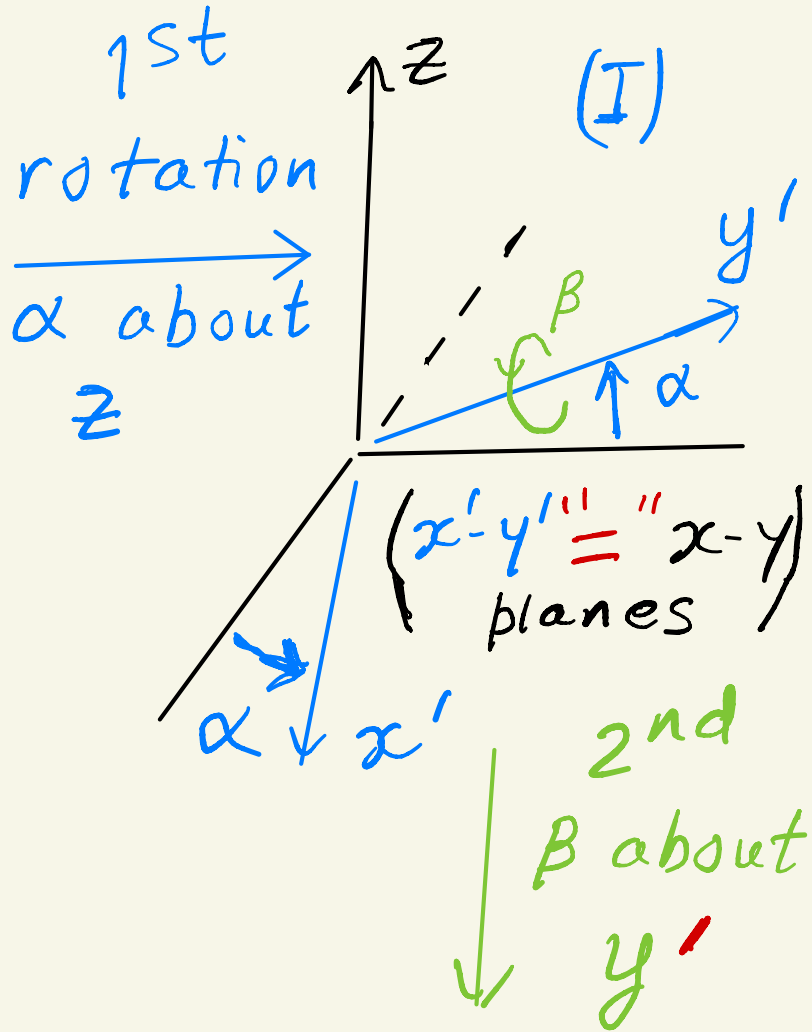 1st
rotation
α about
z
z
(I)
y'
β
α
(x'-y' "=" x-y)
planes
α
x'
2nd
β about
y'